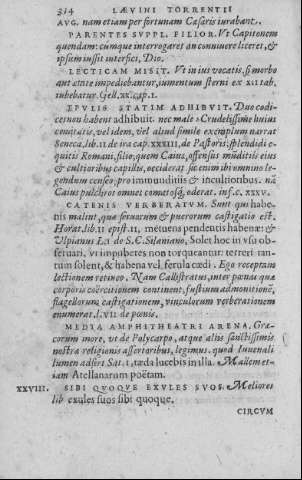 314 LÆVINI TORRENTII
AVG. nam etiam per fortunam Cæsaris iurabant.
PARENTES SVPPL. FILIOR. Vt Capitonem
quendam: cumque interrogares an conniuere liceret, &
ipsum iussit interfici, Dio.
LECTICAM MISIT. Vt in ius vocatis, si morbo
aut ætate impedirentur, iumentum sterni ex XII tab.
iubebatur. Gell. xx. cap. 1.
EPVLIS STATIM ADHIBVIT. Duo codi-
ces non habent adhibuit. nec male. Crudelissimè huius
comitatis, vel idem, vel aliud simile exemplum narrat
Seneca, lib. II de ira cap. XXXIII, de Pastoris, splendidi e-
quitis Romani, filio, quem Caius, offensus munditiis eius
& cultioribus capillis, occiderat. sic enim ibi omnino le-
gendum censeo, pro immunditiis & incultioribus. nã
Caius pulchros omnes comatosq́; oderat. inf. c. XXXV.
CATENIS VERBERATVM. Sunt qui habe-
nis malint, quæ seruorum & puerorum castigatio est.
Horat. lib. II epist. II, metuens pendentis habenæ: &
Vlpianus L. I de S. C. Silaniano, Solet hoc in vsu ob-
seruari, vt impuberes non torqueantur: terreri tan-
tum solent, & habena vel ferula cædi. Ego receptam
lectionem retineo. Nam Callistratus, inter pœnas quæ
corporis coërcitionem continent, fustium admonitionẽ,
flagellorum castigationem, vinculorum verberationem
enumerat. l. VII de pœnis.
MEDIA AMPHITHEATRI ARENA. Græ-
corum more, vt de Polycarpo, atque aliis sanctissimis
nostræ religionis assertoribus, legimus. quod Iuuenali
lumen adfert Sat. I, tæda lucebis in illa. Mallem et-
iam Atellanarum poëtam.
XXVIII. SIBI QVOQVE EXVLES SVOS. Meliores
lib exules suos sibi quoque.
CIRCVM